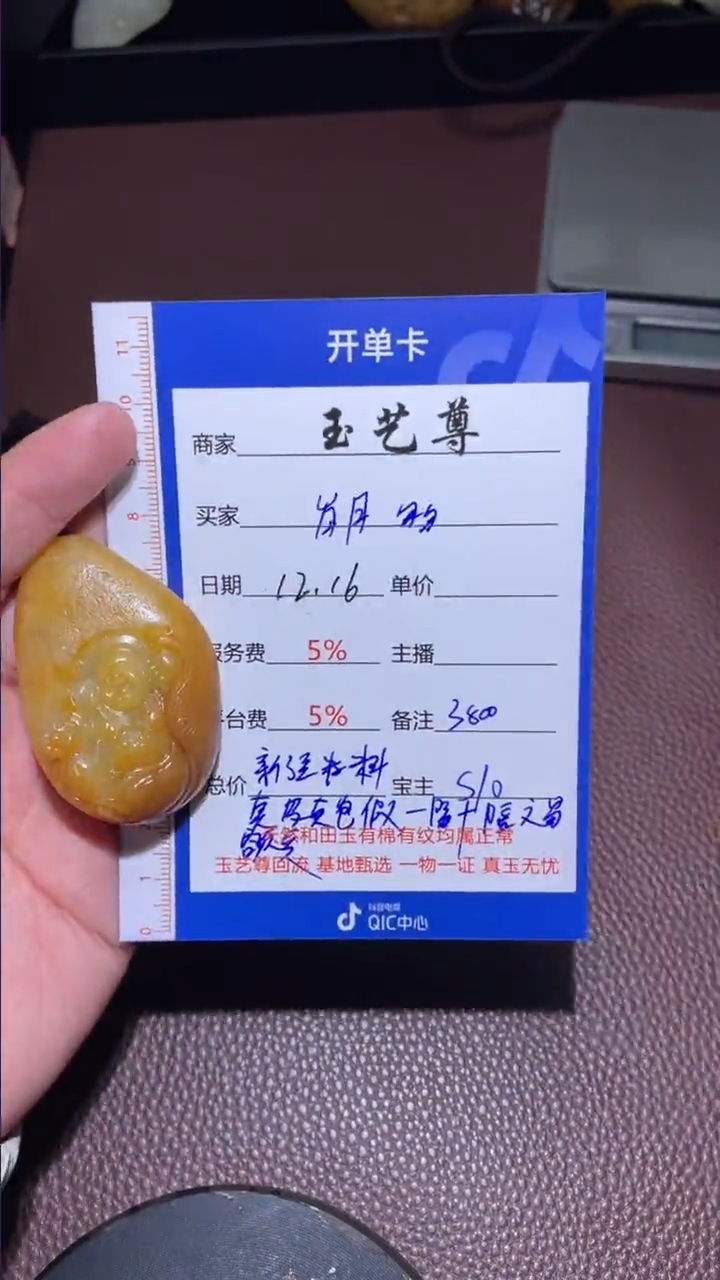 开单卡
商家 玉艺尊
买家 岁月
日期 12.16 单价
服务费 5% 主播
台费 5% 备注 3800
总价 新疆籽料 宝主 S/0
真皮真色假一赔十
天然和田玉有棉有纹均属正常
玉艺尊回流 基地甄选 一物一证 真玉无忧
抖音电商
QIC中心
11
10
9
8
1
0